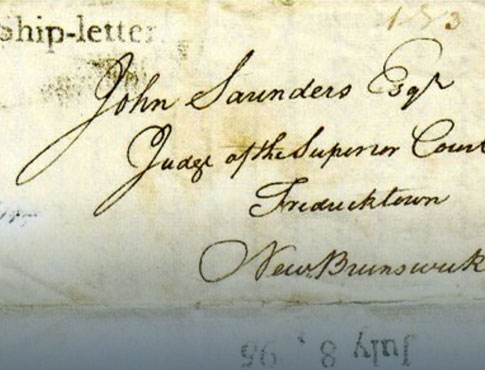 Ship-letter
1 3
John Saunders Esqr
Judge of the Superior Court
Fredericktown
New Brunswick
July 8, 95